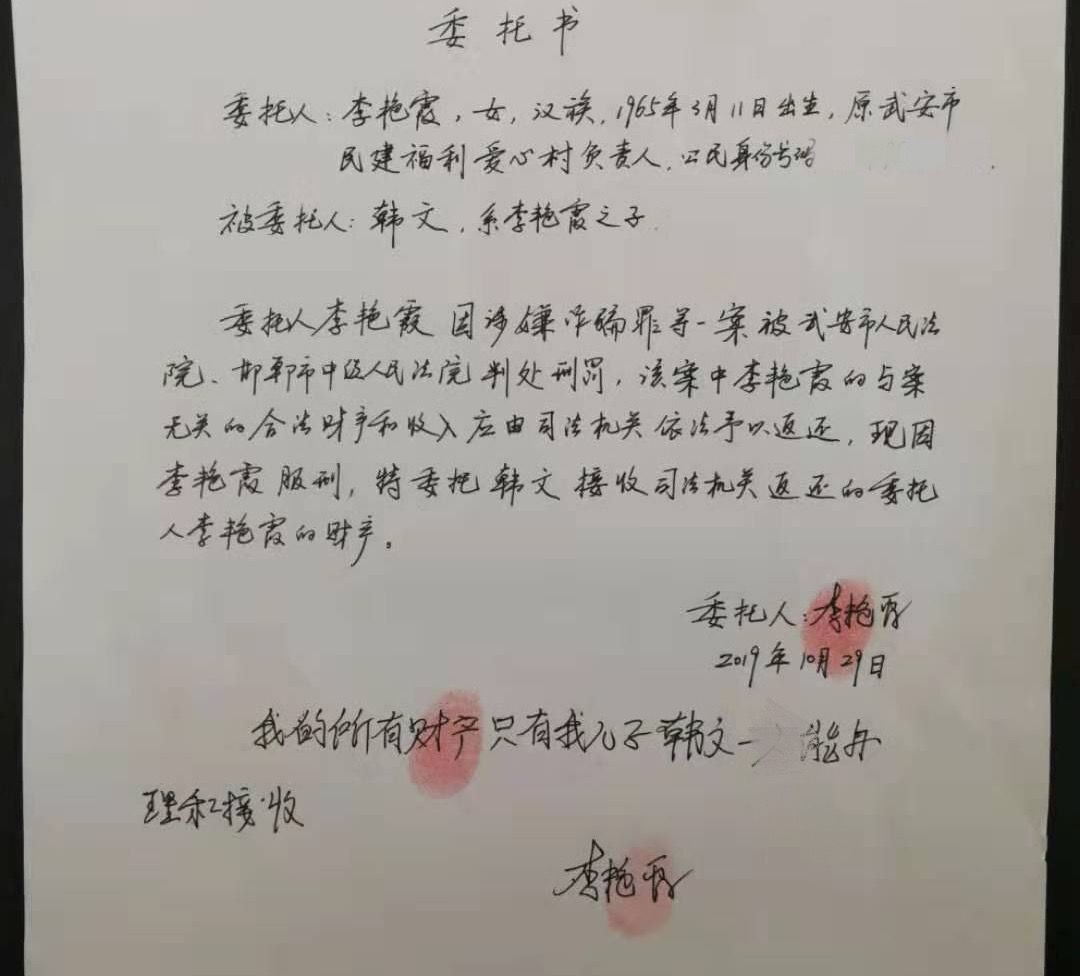 委托书
委托人：李艳霞，女，汉族，1965年3月11日出生，原武安市
民建福利爱心村负责人，公民身份号码
被委托人：韩文，系李艳霞之子.
委托人李艳霞因涉嫌诈骗罪等一案被武安市人民法
院、邯郸市中级人民法院判处刑罚，该案中李艳霞的与案
无关的合法财产和收入应由司法机关依法予以返还，现因
李艳霞服刑，特委托韩文接收司法机关返还的委托
人李艳霞的财产。
委托人：李艳霞
2019年10月29日
我的所有财产只有我儿子韩文一人能办
理和接收
李艳霞